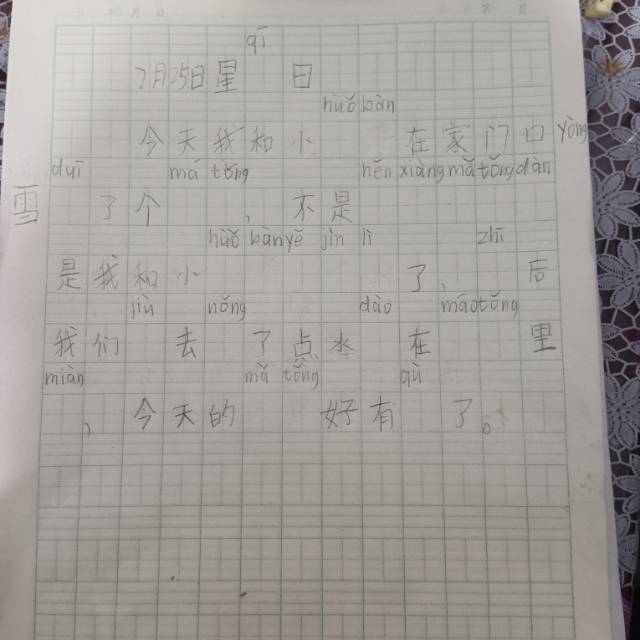 qī
7月25日星 日
huǒ bàn
今天我和小 在家门口 yòng
duī má tǒng hěn xiàng mǎ tǒng dàn
雪 了个 , 不是
huǒ bàn yě jìn lì zhī
是我和小 了、后
jiù nǒng dào máo tǒng
我们 去 了点水 在 里
miàn mǎ tǒng qù
、今天的 好有 了。